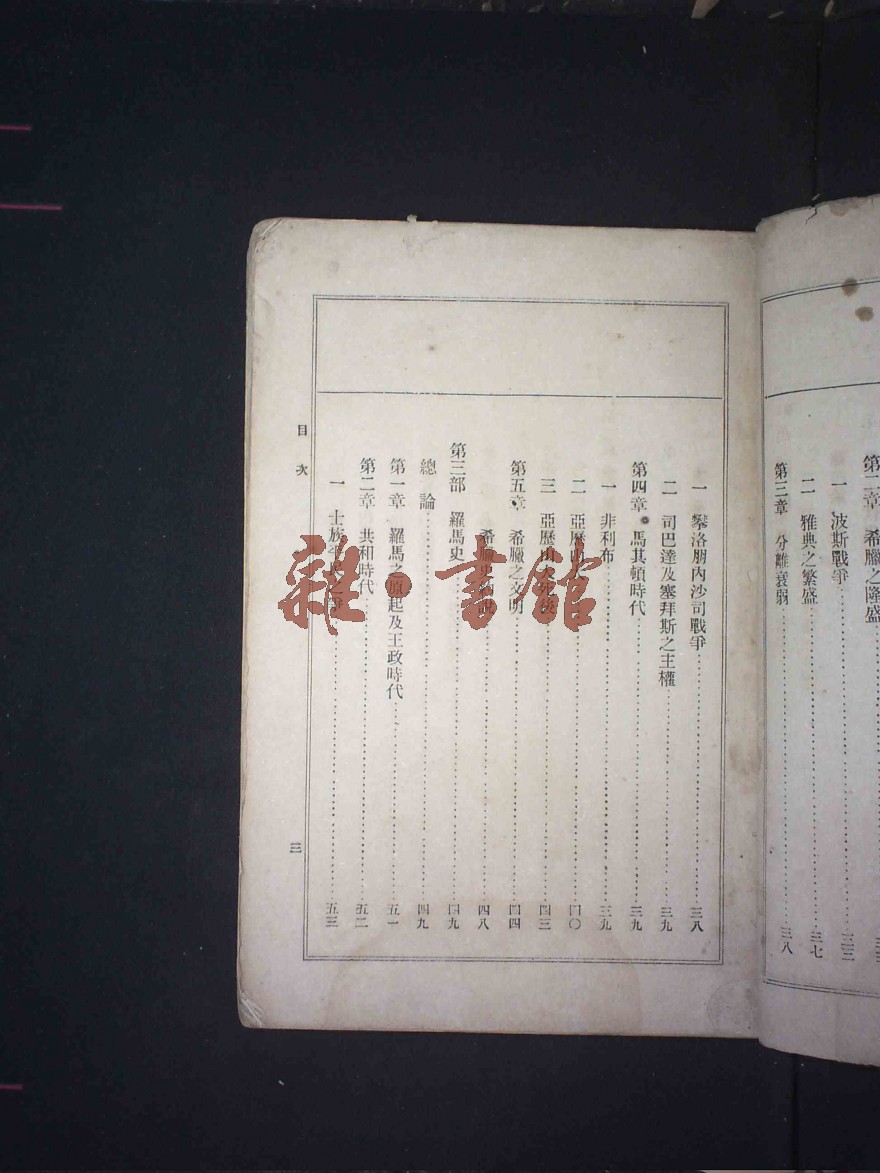 第二章 希臘之隆盛
一 波斯戰爭 三三
二 雅典之繁盛 三七
第三章 分離衰弱 三八
一 攀洛朋內沙司戰爭 三八
二 司巴達及塞拜斯之主權 三九
第四章 馬其頓時代 三九
一 非利布 三九
二 亞歷山大 四〇
三 亞歷山大死後 四三
第五章 希臘之文明 四四
希臘史 四八
第三部 羅馬史 四九
總論 四九
第一章 羅馬之原起及王政時代 五一
第二章 共和時代 五二
一 士族平民之爭 五三
目次
三
雜·書館